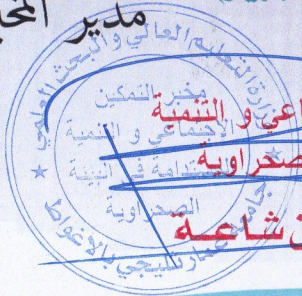 مدير المخ
وزارة التعليم العالي و البحث العلمي
مخبر التمكين
الاجتماعي و التنمية
المستدامة في البيئة
الصحراوية
جامعة عمار ثليجي بالاغواط
عي و التنمية
صحراوية
شاعة